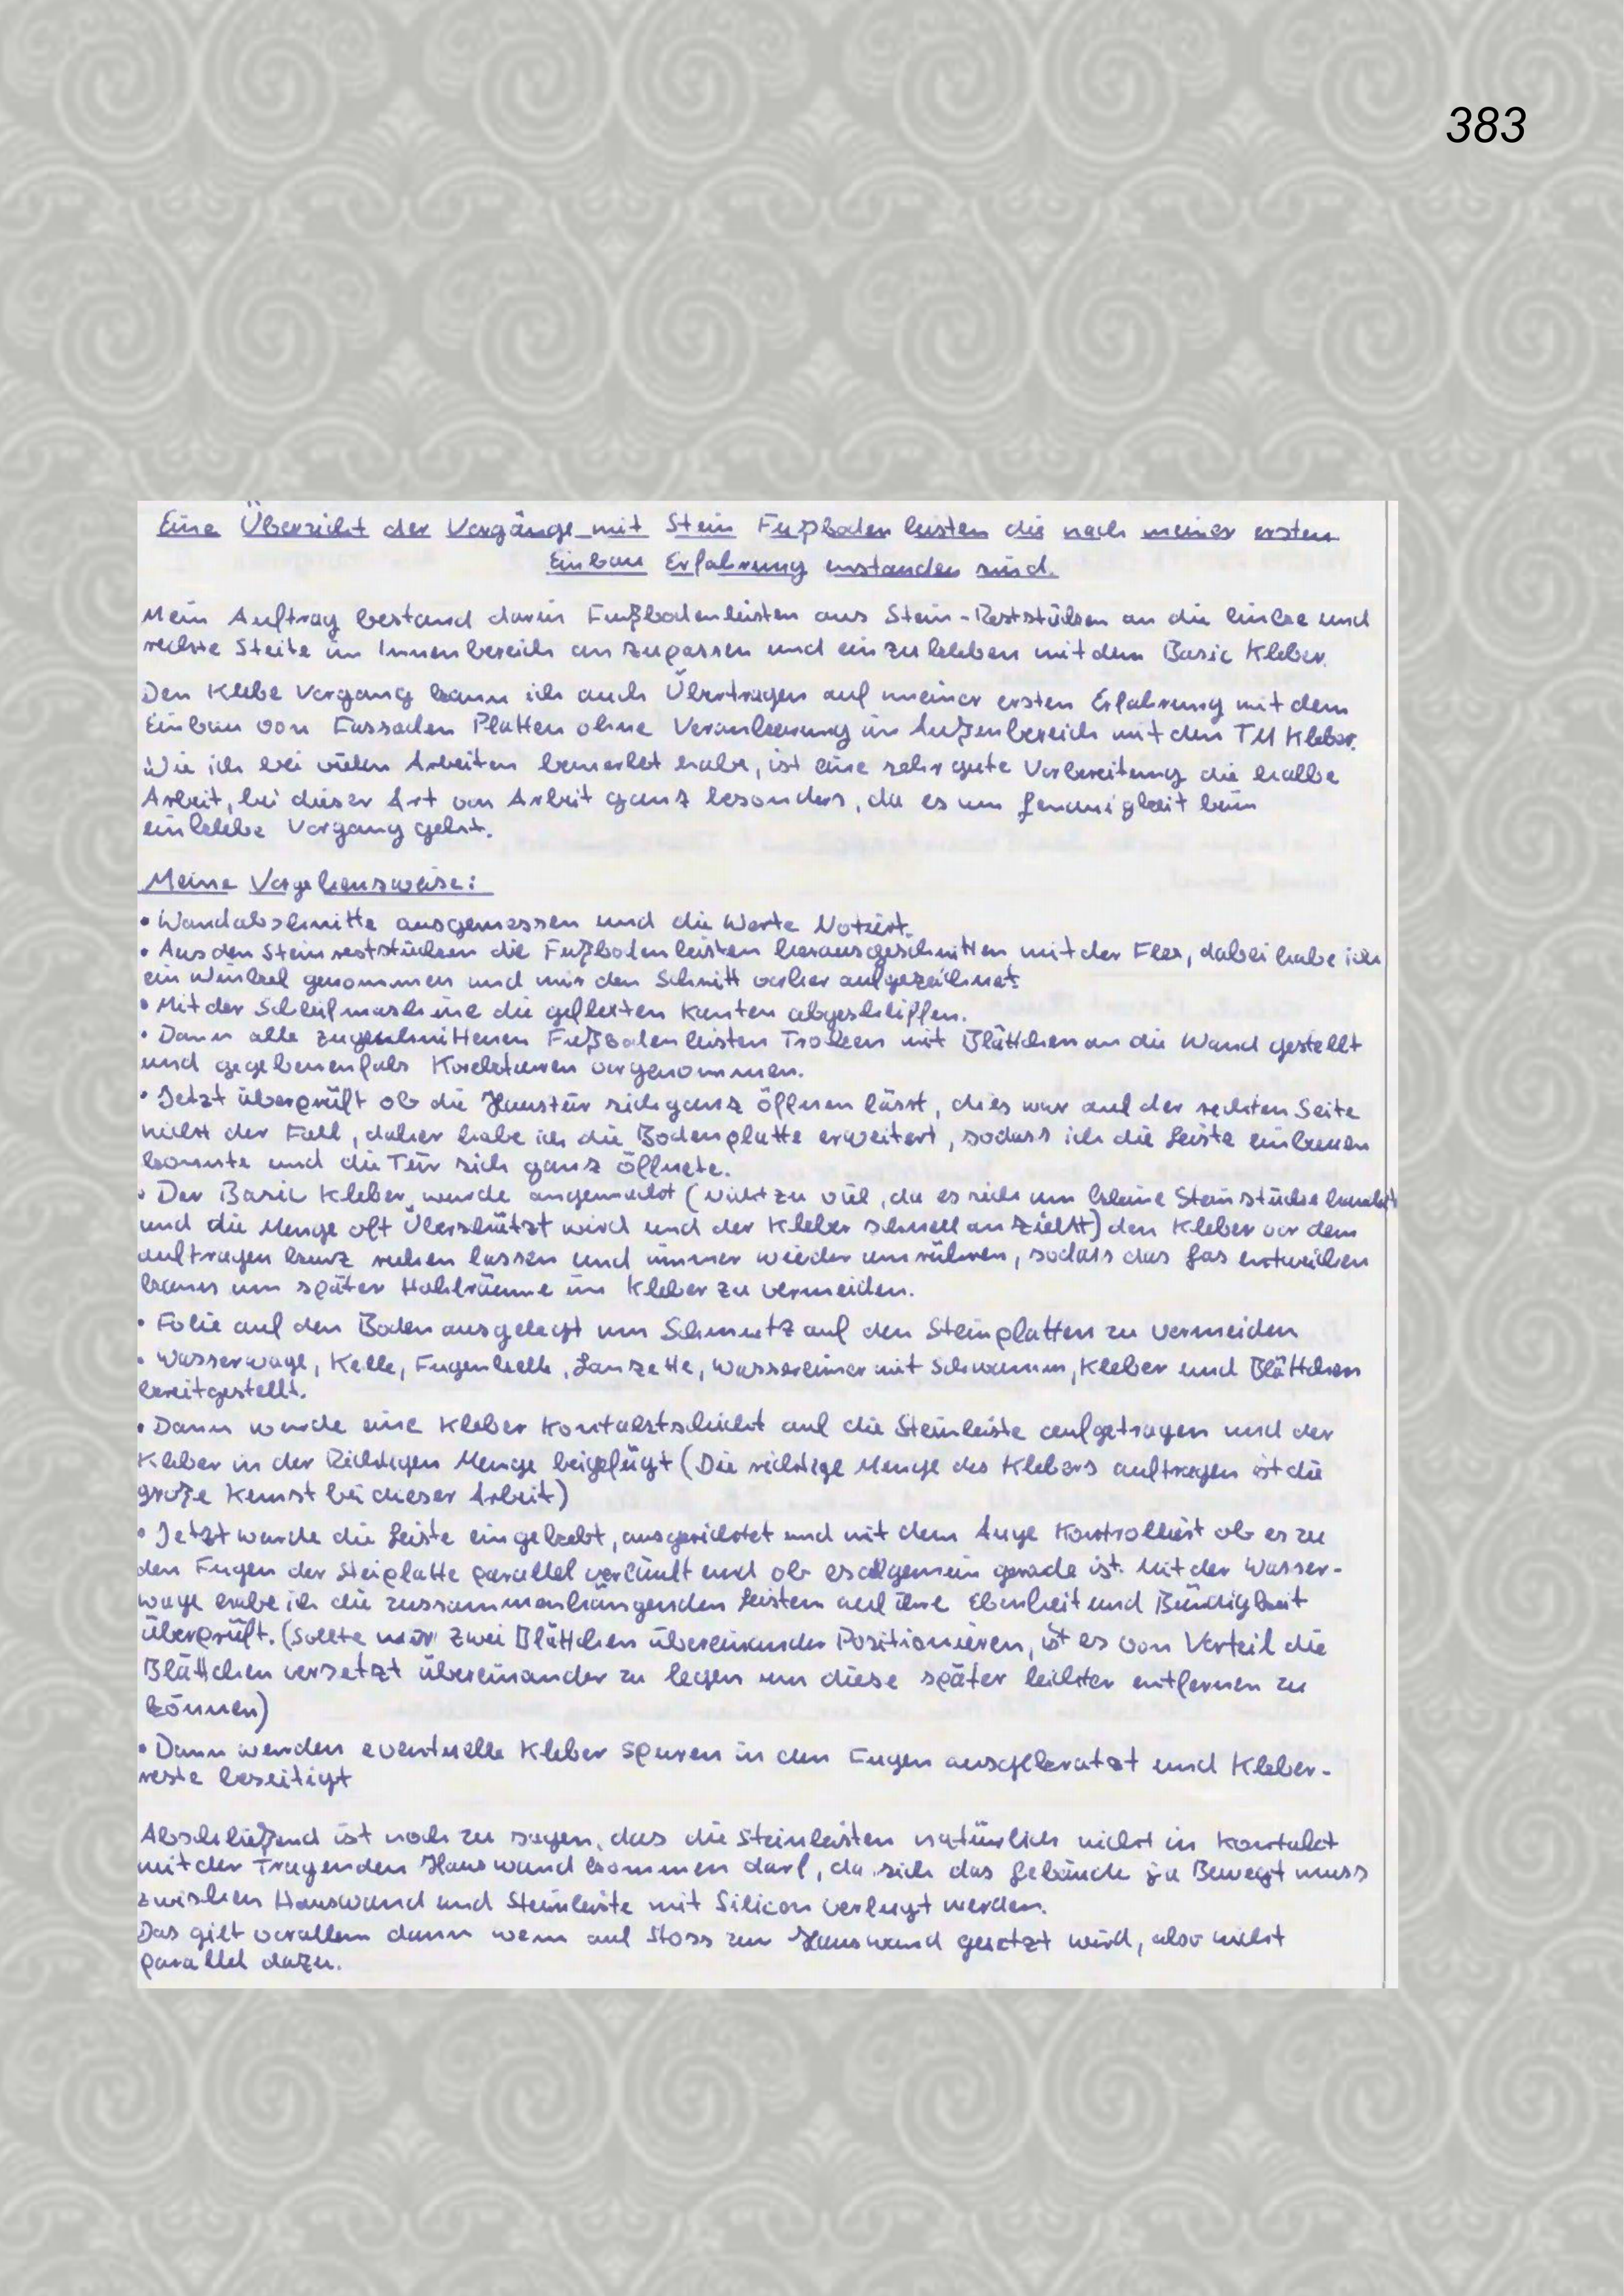 383
Eine Übersicht der Vorgänge mit Stein Fußboden leisten die nach meiner ersten
Einbau Erfahrung enstanden sind.
Mein Auftrag bestand darin Fußbodenleisten aus Stein-Reststücken an die linke und
rechte Steite im Innenbereich an zupassen und einzukleben mit dem Basic Kleber.
Den Klebe Vorgang kann ich auch Übertragen auf meiner ersten Erfahrung mit dem
Einbau von Fassaden Platten ohne Verankerung im Außenbereich mit den TM Kleber.
Wie ich bei vielen Arbeiten bemerkt habe, ist eine sehr gute Vorbereitung die halbe
Arbeit, bei dieser Art von Arbeit ganz besonders, da es um Genauigkeit beim
einklebe Vorgang geht.
Meine Vorgehensweise:
• Wandabschnitte ausgemessen und die Werte Notiert.
• Aus den Steinreststücken die Fußbodenleisten herausgeschnitten mit der Flex, dabei habe ich
ein Winkel genommen und mir den Schnitt vorher aufgezeichnet.
• Mit der Schleifmaschine die geflexten Kanten abgeschliffen.
• Dann alle zugeschnittenen Fußbodenleisten Trocken mit Blättchen an die Wand gestellt
und gegebenenfals Korekturen vorgenommen.
• Jetzt überprüft ob die Haustür sich ganz öffnen lässt, dies war auf der rechten Seite
nicht der Fall, daher habe ich die Bodenplatte erweitert, sodass ich die Leiste einbauen
konnte und die Tür sich ganz öffnete.
• Der Basic Kleber wurde angemischt (nicht zu viel, da es sich um kleine Steinstücke handelt
und die Menge oft Überschätzt wird und der Kleber schnell an zieht) den Kleber vor dem
auftragen kurz ruhen lassen und immer wieder umrühren, sodass das Gas entweichen
kann um später Hohlräume im Kleber zu vermeiden.
• Folie auf den Boden ausgelegt um Schmutz auf den Steinplatten zu vermeiden
• Wasserwage, Kelle, Fugenkelle, Lanzette, Wassereimer mit Schwamm, Kleber und Blättchen
bereitgestellt.
• Dann wurde eine Kleber Kontaktschicht auf die Steinleiste aufgetragen und der
Kleber in der Richtigen Menge beigefügt (Die richtige Menge des Klebers auftragen ist die
große Kunst bei dieser Arbeit)
• Jetzt wurde die Leiste eingeklebt, ausgerichtet und mit dem Auge Kontrolliert ob es zu
den Fugen der Steiplatte parallel verläuft und ob es allgemein gerade ist. Mit der Wasser-
wage habe ich die zussammenhängenden Leisten auf ihre Ebenheit und Bündigkeit
überprüft. (Sollte zwei Blättchen übereinander Positionieren, ist es von Vorteil die
Blättchen versetzt übereinander zu legen um diese später leichter entfernen zu
können)
• Dann werden eventuelle Kleber Spuren in den Fugen ausgekratzt und Kleber-
reste beseitigt
Abschließend ist noch zu sagen, das die Steinleisten natürlich nicht in Kontakt
mit der Tragenden Hauswand kommen darf, da sich das Gebäude ja Bewegt muss
zwischen Hauswand und Steinleiste mit Silicon verfugt werden.
Das gilt vorallem dann wenn auf Stoss zur Hauswand gesetzt wird, also nicht
parallel dazu.